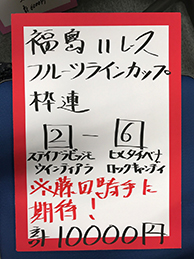 福島11レース
フルーツラインカップ
枠連
2-6
ステイブラビッシモ ヒメタチバナ
ツインティアラ ロックキャンディ
※勝田騎手に
期待!
計10000円